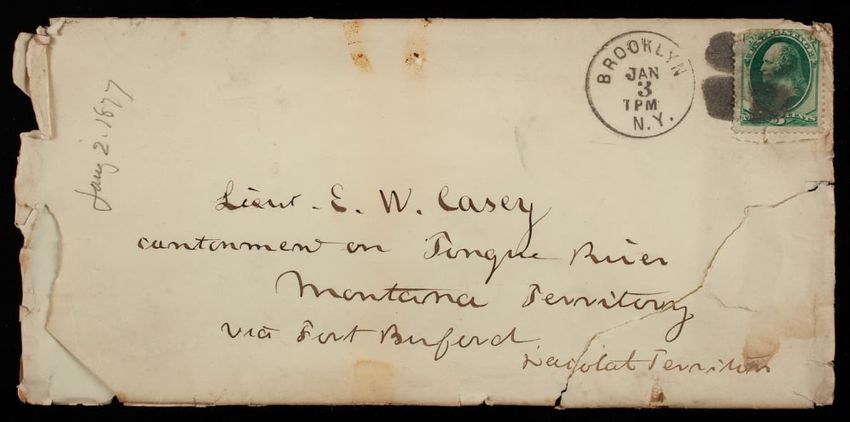 Jany 2. 1877
BROOKLYN
JAN
3
1 PM
N.Y.
Lieut. E. W. Casey
cantonment on Tongue River
Montana Territory
via Fort Buford
Dacotah Territory